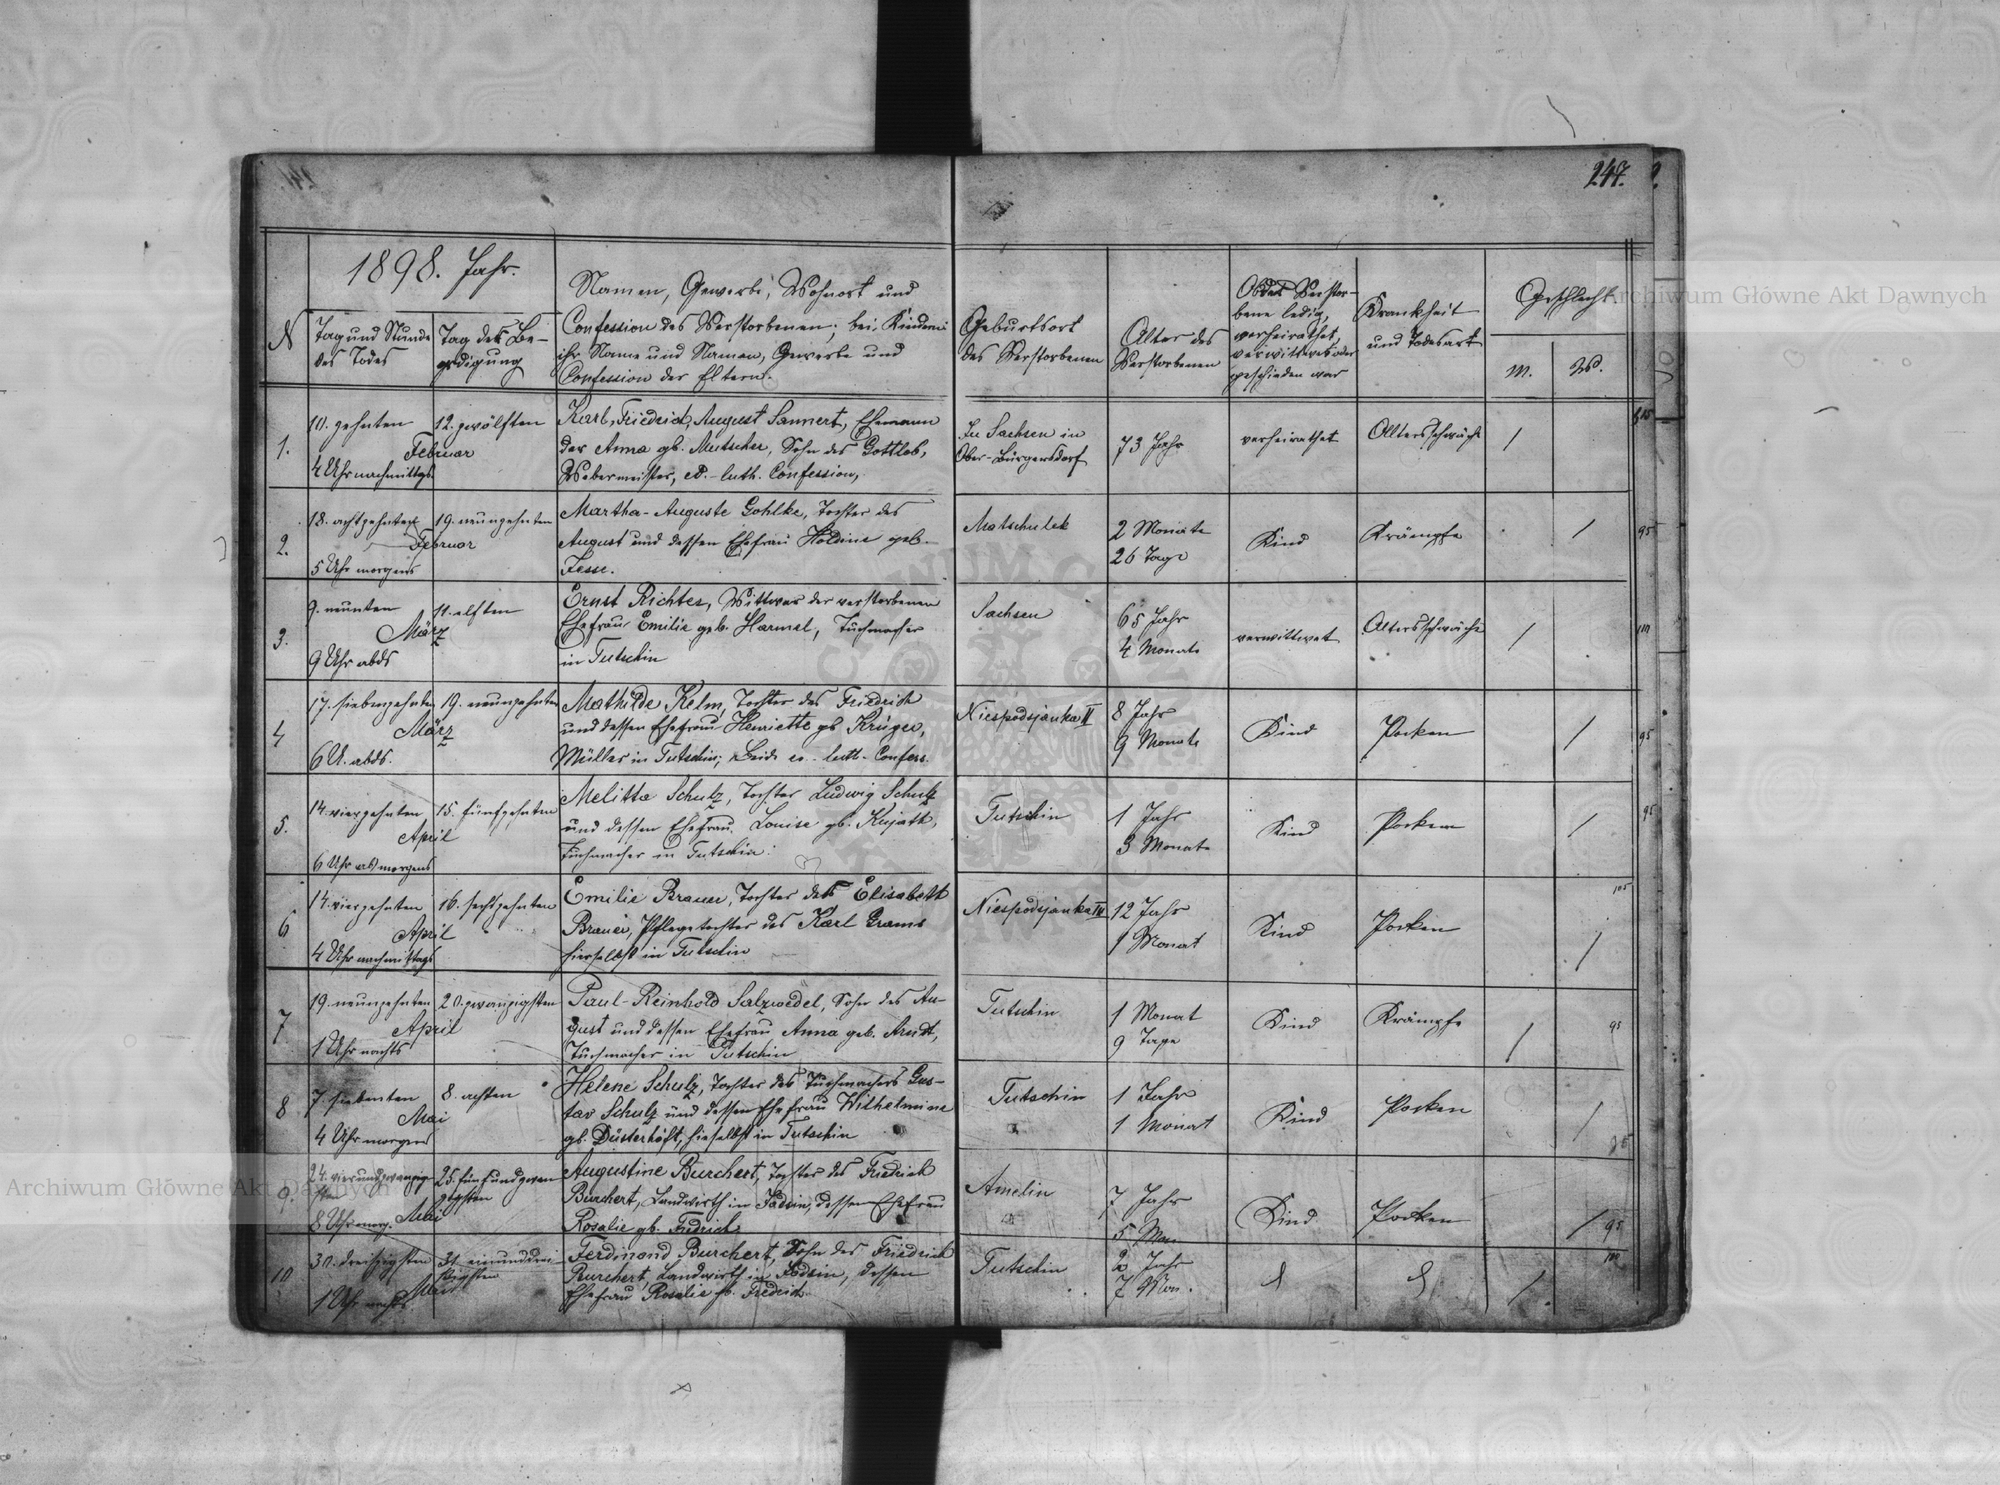 247.
1898. Jahr.
№
Tag und Stunde
des Todes
Tag der Be-
erdigung
Namen, Gewerbe, Wohnort und
Confession des Verstorbenen; bei Kindern
ihr Name und Namen, Gewerbe und
Confession der Eltern.
Geburtsort
des Verstorbenen
Alter des
Verstorbenen
Ob der Verstor-
bene ledig,
verheirathet,
verwittwet oder
geschieden war
Krankheit
und Todesart
Geschlecht
M. W.
1.
10. zehnten
12. zwölften
Februar
4 Uhr nachmittgs
Karl, Friedrich, August Sannert, Ehemann
der Anna gb. Mutscher, Sohn des Gottlob,
Webermeister, ev.-luth. Confession,
In Sachsen in
Ober-Bürgersdorf
73 Jahr
verheirathet
Altersschwäche
/
2.
18. achtzehnten
19. neunzehnten
Februar
5 Uhr morgens
Martha-Auguste Gohlke, Tochter des
August und dessen Ehefrau Holdine geb.
Jesse.
Matschulek
2 Monate
26 Tage
Kind
Krämpfe
/
95
3.
9. neunten
11. elften
März
9 Uhr abds
Ernst Richter, Wittwer der verstorbenen
Ehefrau Emilie geb. Harmel, Tuchmacher
in Tutschin
Sachsen
65 Jahr
4 Monate
verwittwet
Altersschwäche
/
4
17. siebenzehnten
19. neunzehnten
März
6 U. abds.
Mathilde Kelm, Tochter des Friedrich
und dessen Ehefrau Henriette gb Krüger,
Müller in Tutschin; Beide ev.-luth. Confess.
Niespodsjanka II
8 Jahr
9 Monate
Kind
Pocken
/
95
5.
14. vierzehnten
15. fünfzehnten
April
6 Uhr morgens
Melitta Schulz, Tochter Ludwig Schulz
und dessen Ehefrau Louise gb. Kujath,
Tuchmacher in Tutschin.
Tutschin
1 Jahr
3 Monate
Kind
Pocken
/
95
6
14. vierzehnten
16. sechszehnten
April
4 Uhr nachmittags
Emilie Brauer, Tochter der Elisabeth
Brauer, Pflegetochter des Karl Grams
hierselbst in Tutschin
Niespodsjanka IV
12 Jahr
1 Monat
Kind
Pocken
/
7
19. neunzehnten
20. zwanzigsten
April
1 Uhr nachts
Paul-Reinhold Salzwedel, Sohn des Au-
gust und dessen Ehefrau Anna geb. Arndt,
Tuchmacher in Tutschin
Tutschin
1 Monat
9 Tage
Kind
Krämpfe
/
95
8
7. siebenten
8. achten
Mai
4 Uhr morgens
Helene Schulz, Tochter des Tuchmachers Gus-
tav Schulz und dessen Ehefrau Wilhelmine
gb. Düsterhöft, hieselbst in Tutschin
Tutschin
1 Jahr
1 Monat
Kind
Pocken
/
95
9.
24. vierundzwanzig-
sten
25. fünfundzwan-
zigsten
Mai
8 Uhr morg.
Augustine Burchert, Tochter des Friedrich
Burchert, Landwirth in Jadzin, dessen Ehefrau
Rosalie gb. Fredrich
Amelin
7 Jahr
5 Mon
Kind
Pocken
/
95
10
30. dreissigsten
31. einunddrei-
ssigsten
Mai
1 Uhr nachts
Ferdinand Burchert, Sohn des Friedrich
Burchert, Landwirth in Jadzin, dessen
Ehefrau Rosalie gb. Fredrich
Tutschin
2 Jahr
7 Mon.
/
Archiwum Główne Akt Dawnych
Archiwum Główne Akt Dawnych